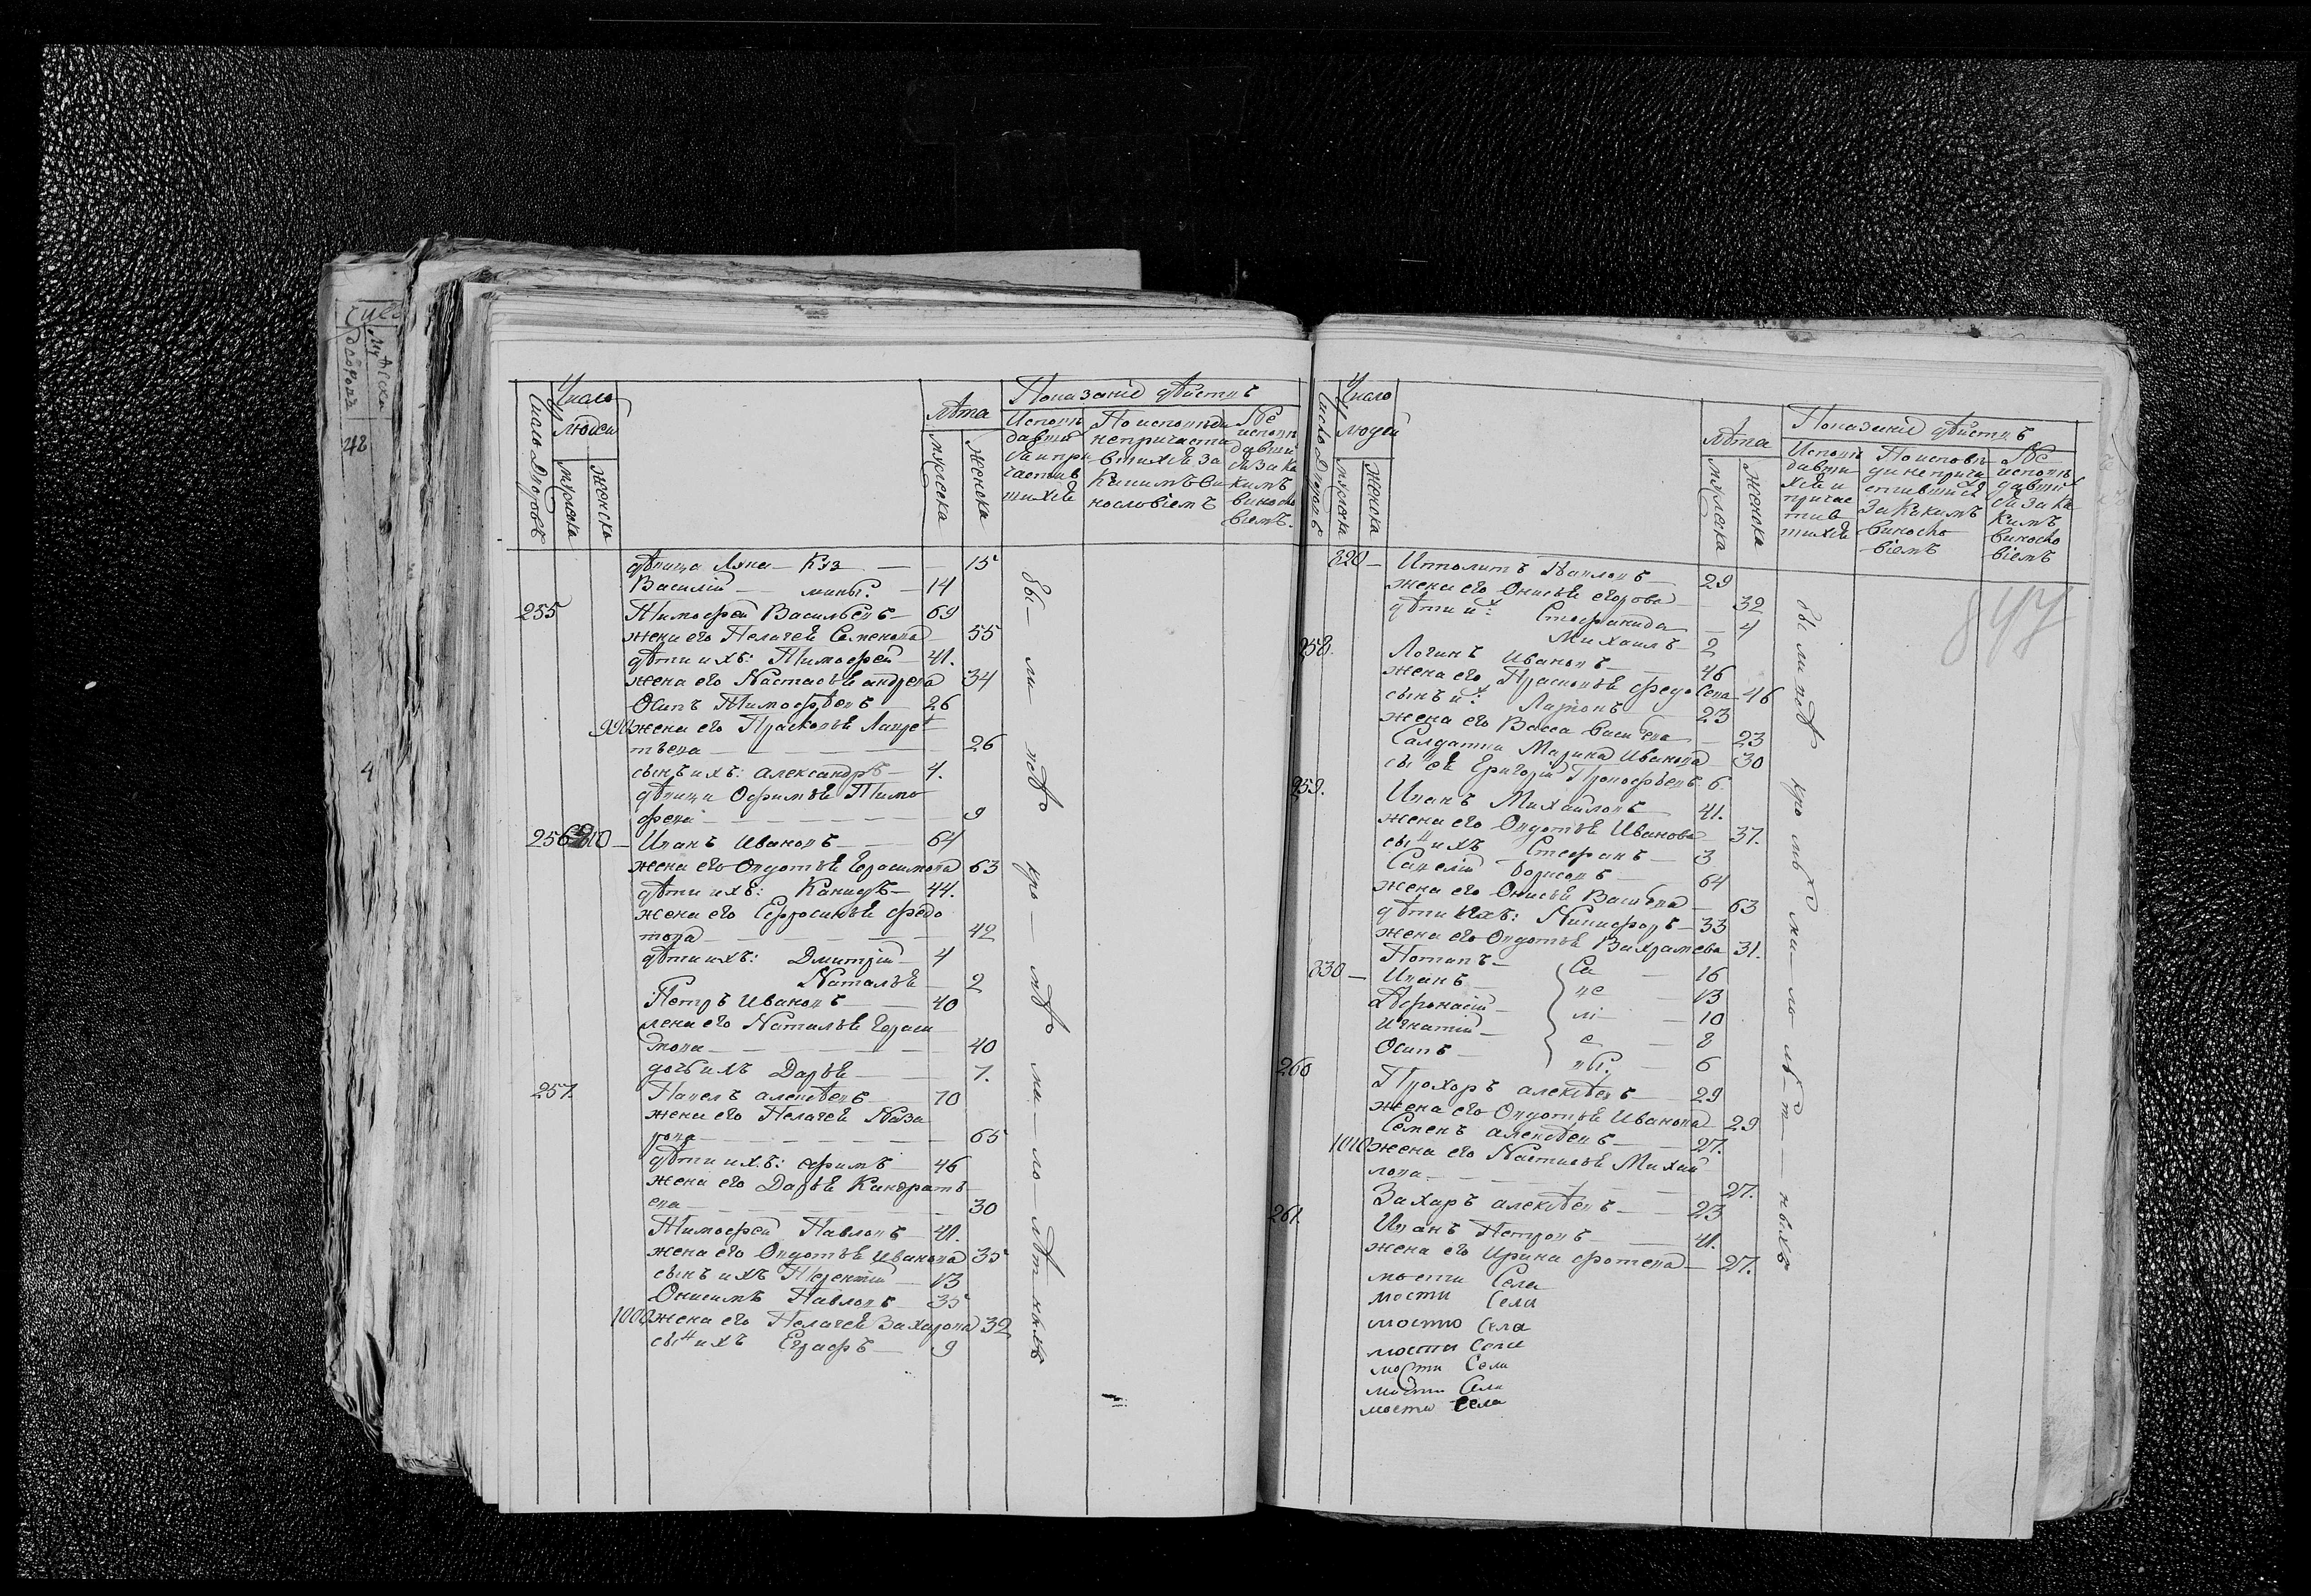 Число Дворовъ
Число людей
мужеска
женска
лѣта
мужеска
женска
Показание дѣйствъ
Исповѣ
давши
хся и при
частив
шихся
По исповѣди
непричасти
вшихся за
какимъ ви
нословіемъ
Не
исповѣ
давши
ся за ка
кимъ
виносло
віемъ.
дѣвица Анна Куз — 15
Василій — мины. — 14
255 Тимофей Васильевъ — 69
жена его Пелагея Семенова 55
дѣти ихъ: Тимофей — 41.
жена его Настасья андреева 34
Осипъ Тимофѣевъ — 26
990 жена его Прасковья Лавре
тьева — 26
сынъ ихъ: александръ — 4.
дѣвица Офимья Тимо
феева — 9
256 810 — Иванъ Ивановъ — 64
жена его Овдотья Герасимова 63
дѣти ихъ: Канидъ — 44.
жена его Ефросинья федо
това — 42
дѣти ихъ: Дмитрій — 4
Наталья — 2
Петръ Ивановъ — 40
жена его Наталья Гераси
мова — 40
дочь ихъ Дарья — 7.
257. Павелъ алексѣевъ — 70
жена его Пелагея Наза
рова — 65
дѣти ихъ: ефимъ — 46
жена его Дарья Кандрать
ева — 30
Тимофей Павловъ — 41.
жена его Овдотья Иванова 35
сынъ ихъ Терентій — 13
Онисимъ Павловъ — 35
1000 жена его Пелагея Захарова 32
сын ихъ Еграфъ — 9
Число Дворовъ
Число людей
мужеска
женска
лѣта
мужеска
женска
Показание дѣйствъ
Исповѣ
давши
хся и
причас
тив
шихся
По исповѣ
ди неприча
стившийся
за какимъ
виносло
віемъ
Не
исповѣ
давших
ся за ка
кимъ
виносло
віемъ
847
820 — Ипполитъ Павловъ — 29
жена его Онисья егорова — 32
дѣти их: Стефанида — 4
Михаилъ — 2
258. Логинъ Ивановъ — 46
жена его Прасковья федосеева — 46
сынъ их Ларіонъ — 23
жена его Васса Васильева — 23
Салдатка Марина Иванова — 30
сын ея Григорій Прокофьевъ 6.
259. Иванъ Михайловъ — 41.
жена его Овдотья Иванова — 37.
сын ихъ Стефанъ — 3
Савелій борисовъ — 64
жена его Онисья Васильева — 63
дѣти ихъ: Никифоръ — 33
жена его Овдотья Вахрамеева 31.
Потапъ — Са — 16
830 — Иванъ — ве — 13
Афонасій — лі — 10
Игнатій — е — 8
Осипъ — вы. — 6
260 Прохоръ алексѣевъ — 29
жена его Овдотья Иванова — 29
Семенъ алексѣевъ — 27.
1010 жена его Настасья Михай
лова — 27.
Захаръ алексѣевъ — 23
261. Иванъ Петровъ — 41.
жена его Ирина фотеева — 27.
мости Села
мости Села
мостю Села
мости Села
мости Села
мости Села
мости Села